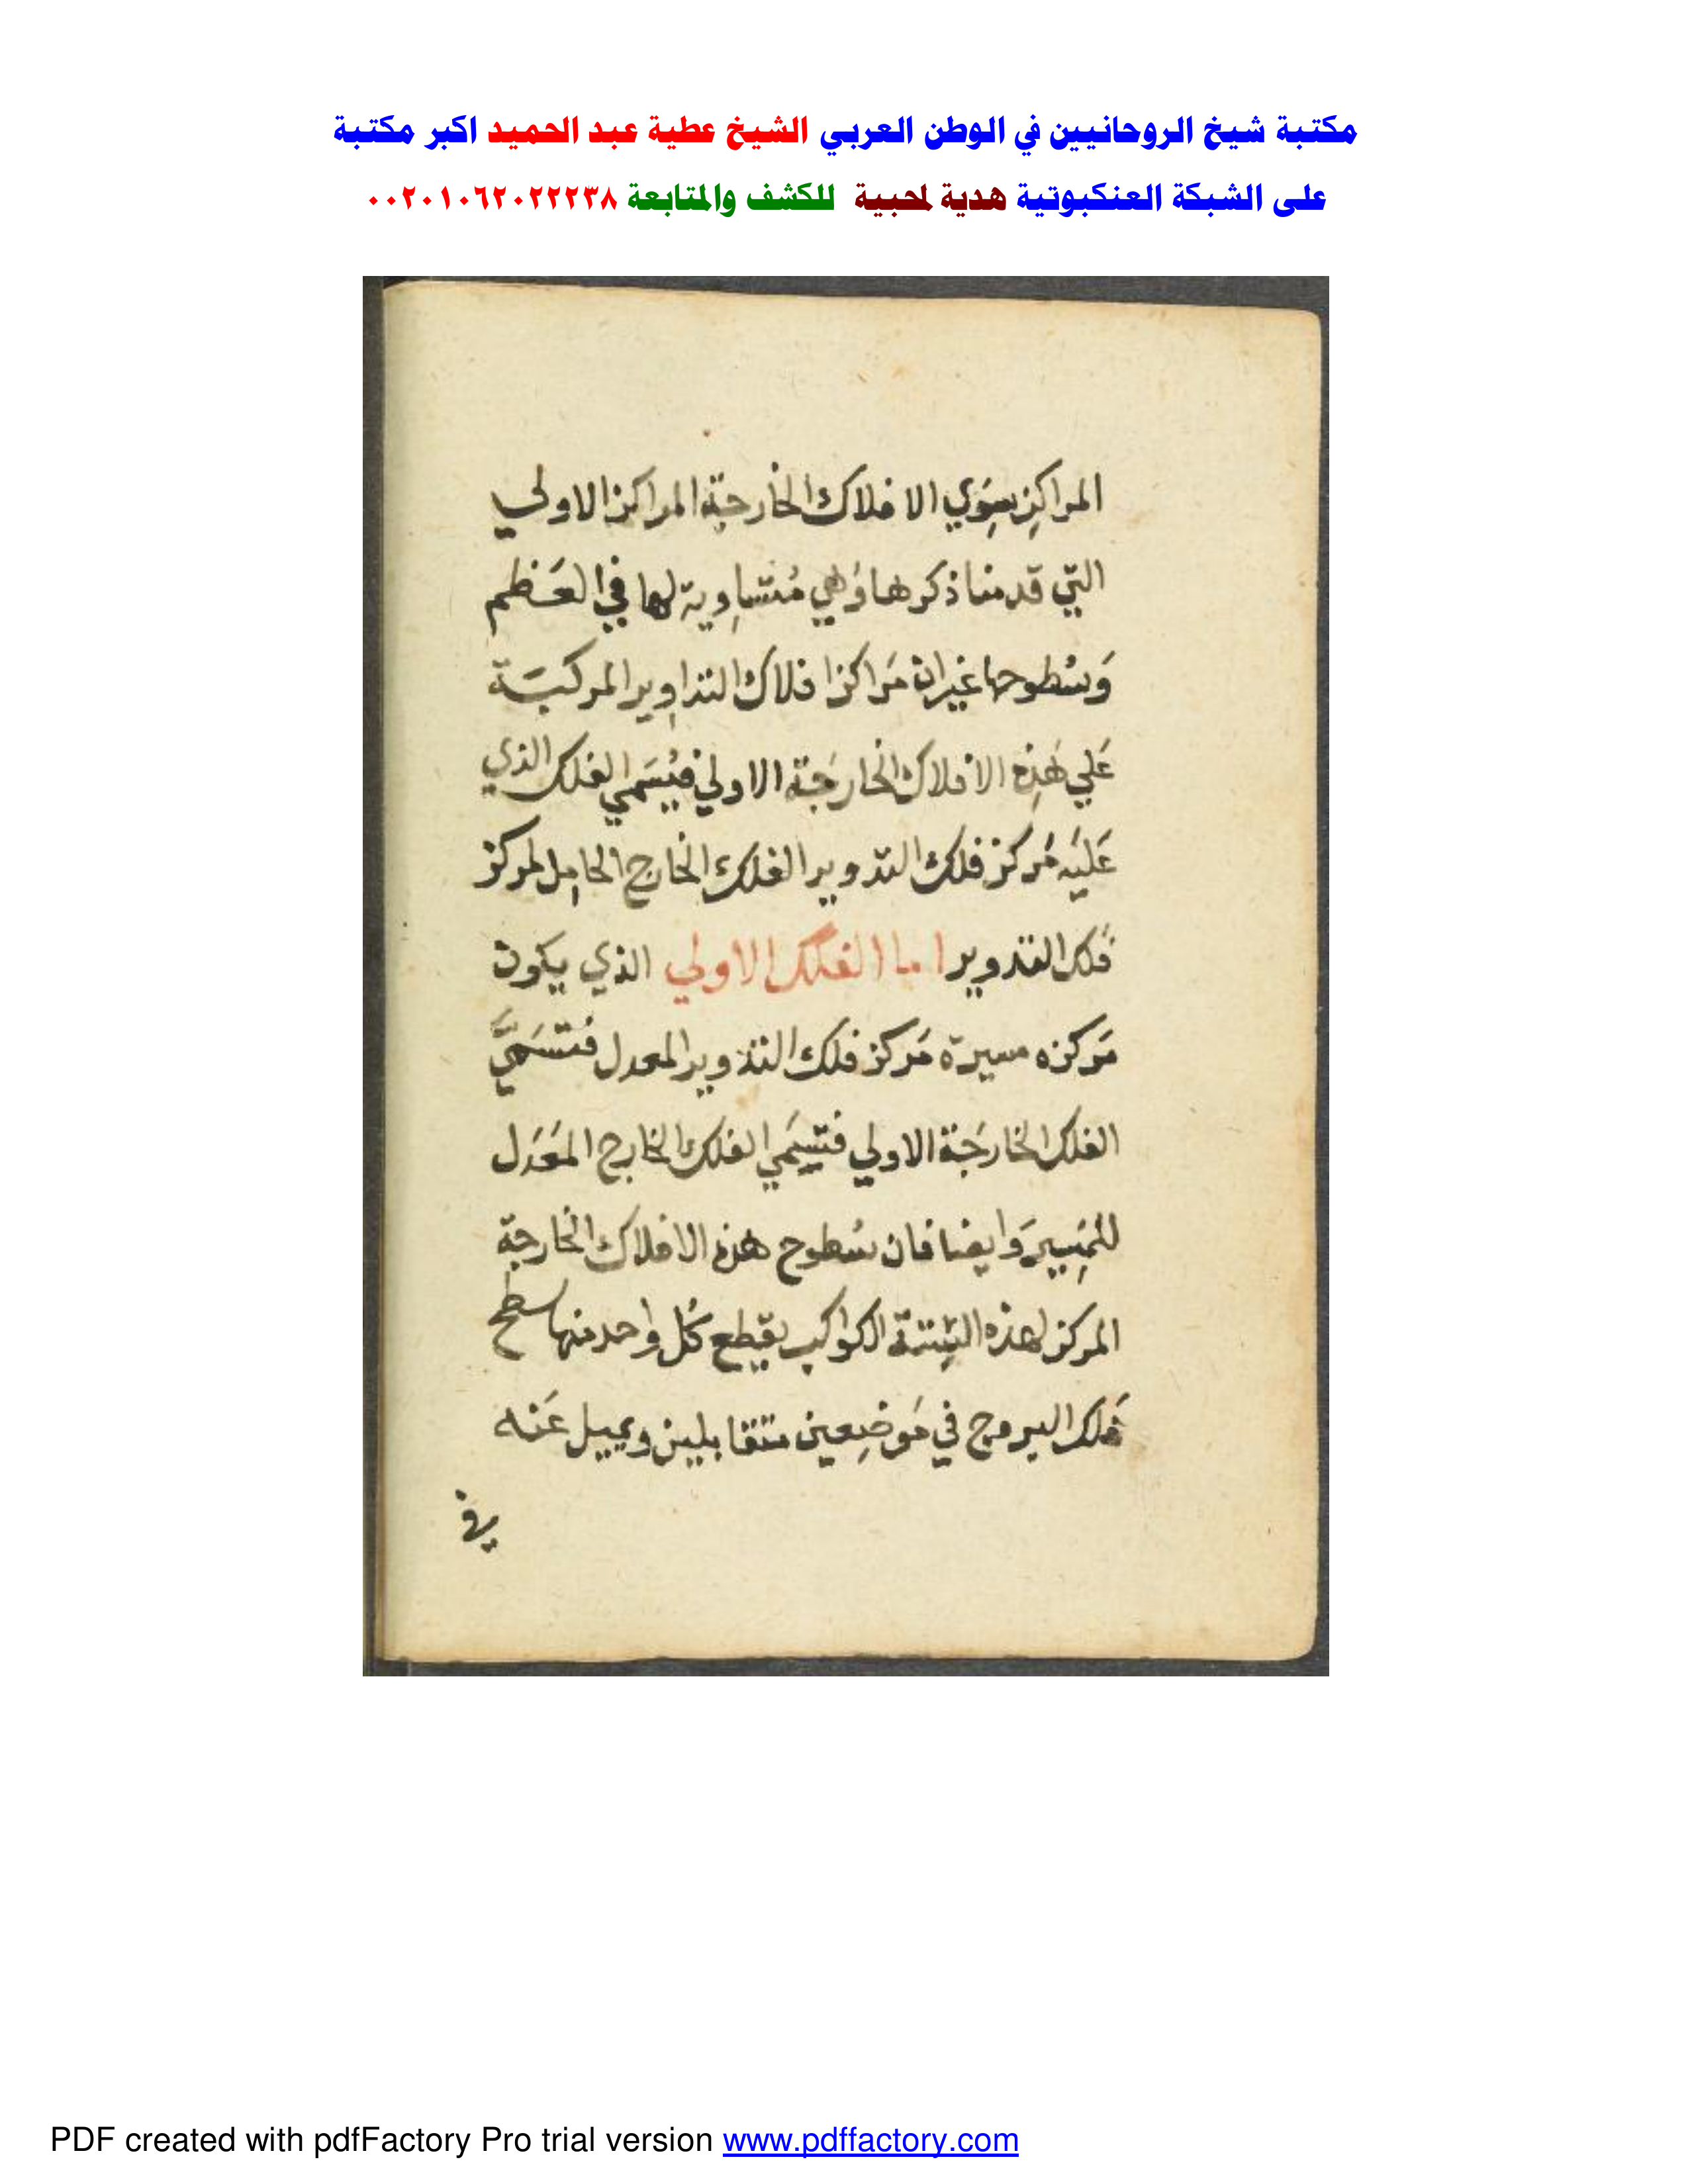 مكتبة شيخ الروحانيين في الوطن العربي الشيخ عطية عبد الحميد اكبر مكتبة
على الشبكة العنكبوتية هدية لمحبية للكشف والمتابعة ٠٠٢٠١٠٦٢٠٢٢٢٣٨
المراكِز سِوَي الافلاك الخارجة المراكز الاولي
التي قدمنا ذكرها وَهي مُتساوية لها في العَظم
وَسُطوحها غيران مَراكز افلاك التداوير المركبَة
عَلي هَذِه الافلاك الخارجَة الاولي فيُسَمي الفلك الذي
عَليَه مَركز فلك التدوير الفلك الخارج الحامِل لمركز
فلك التدوير اما الفلك الاولي الذي يكون
مَركزه مسيرة مَركز فلك التدوير المعدل فتسَميَّ
الفلك الخارجَة الاولي فتسَمي الفلك الخارج المعَدَل
للمَسِير وَايضا فان سُطوح هذه الافلاك الخارجة
المركز لهذه الستة الكواكب يقطع كُل واحد منها سطح
فَلك البروج في مَوضِعين متقابلين ويميل عَنه
في
PDF created with pdfFactory Pro trial version www.pdffactory.com